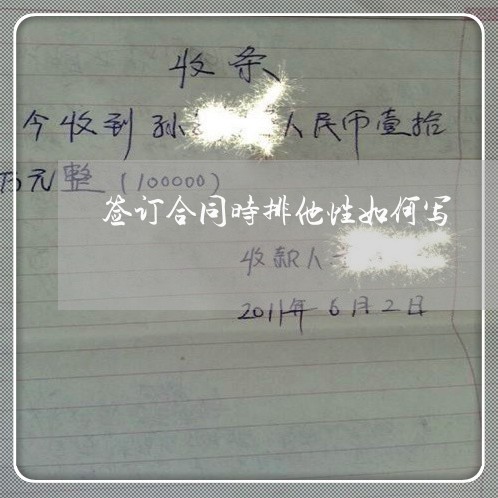 收条
今收到孙 人民币壹拾
万元整（100000）
签订合同時排他性如何写
收款人
2011年6月2日